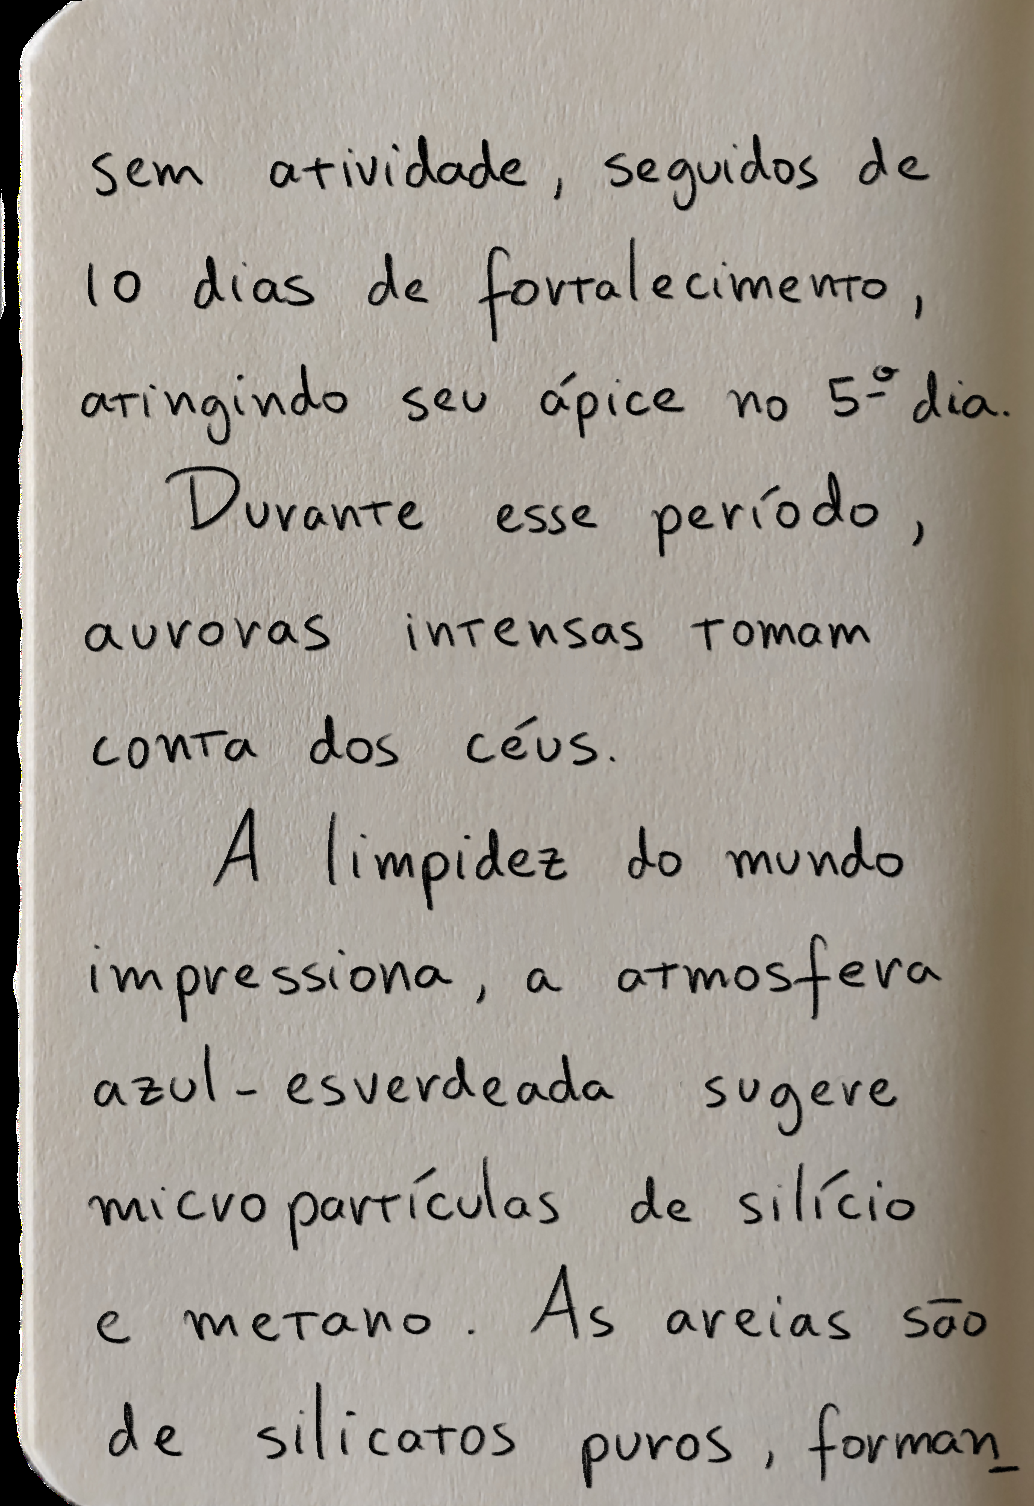 sem atividade, seguidos de
10 dias de fortalecimento,
atingindo seu ápice no 5º dia.
Durante esse período,
auroras intensas tomam
conta dos céus.
A limpidez do mundo
impressiona, a atmosfera
azul-esverdeada sugere
micropartículas de silício
e metano. As areias são
de silicatos puros, forman_